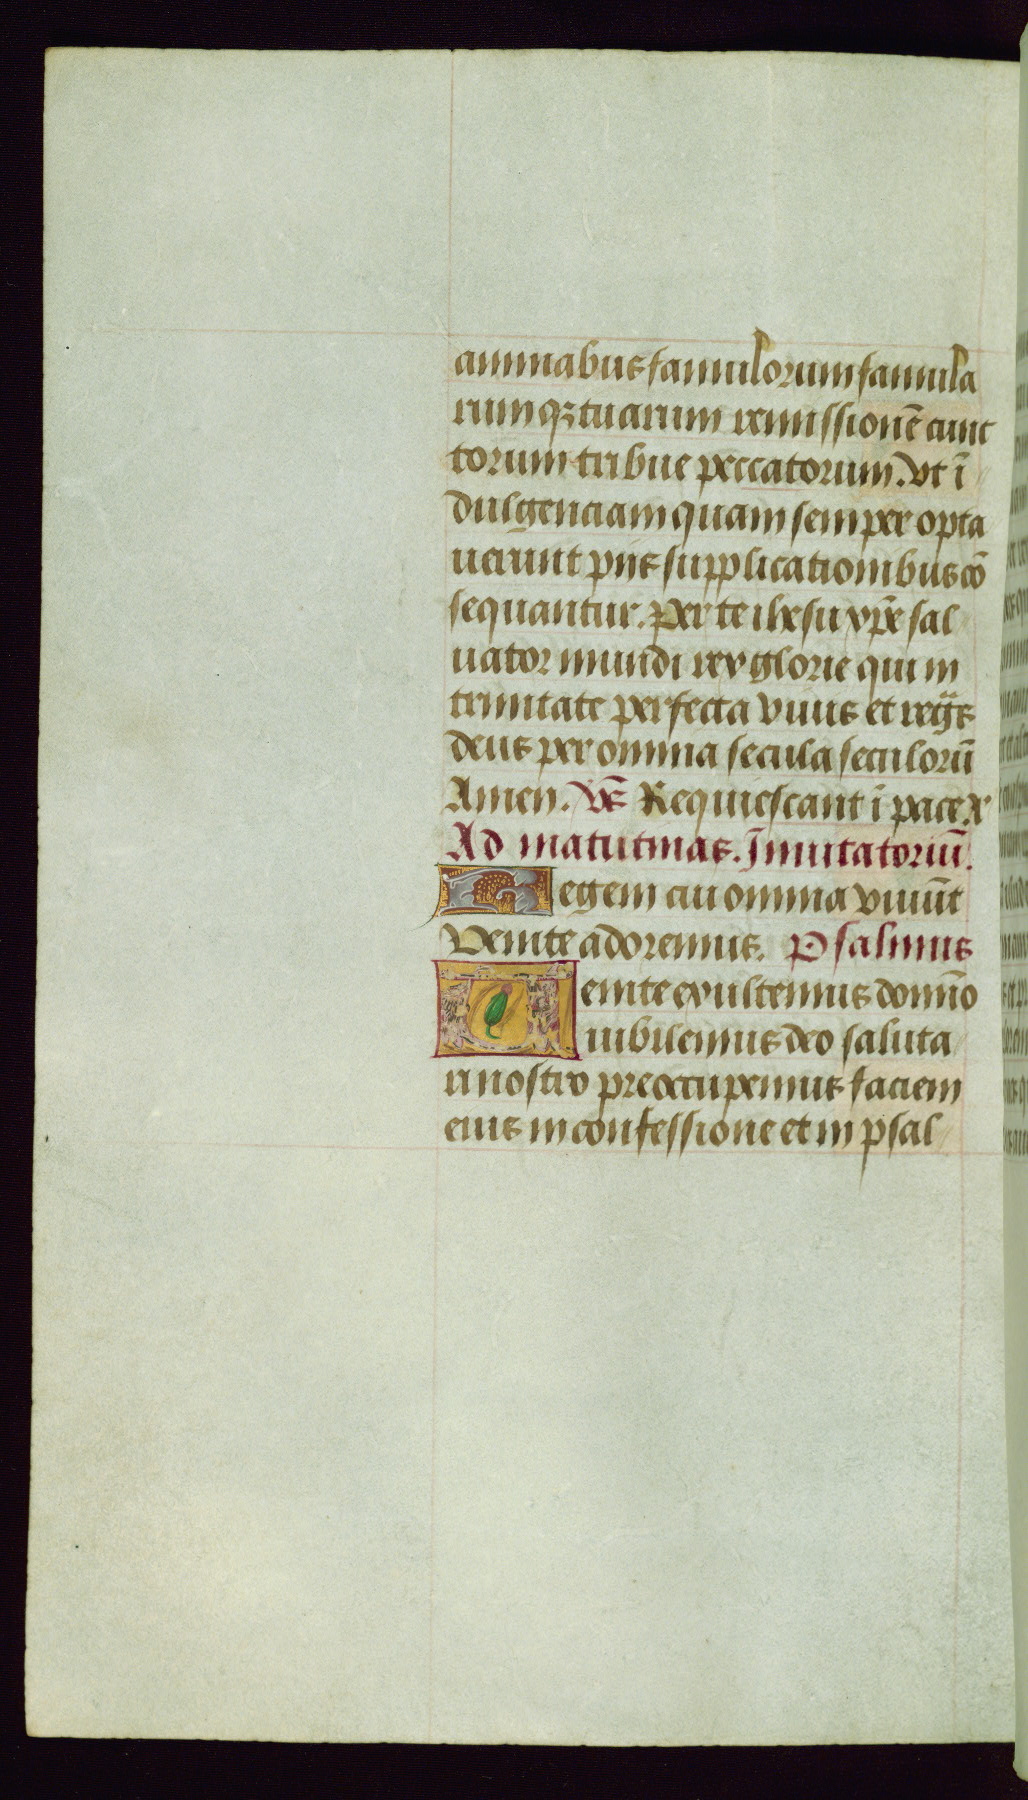 animabus famulorum famula
rumqꝫ tuarum remissionē cunc
torum tribue peccatorum. Vt ī
dulgenciam quam semper opta
uerunt piis supplicationibus cō
sequantur. Per te ihesu xp̄e sal
uator mundi rex glorie qui in
trinitate perfecta viuis et regīs
deus per omnia secula seculorū
Amen. Vs̄ Requiescant ī pace. A
Ad matutinas. Inuitatoriū.
Regem cui omnia viuūt
Venite adoremus. Psalmus
Venite exultemus domīno
iubilemus deo saluta
ri nostro preoccupemus faciem
eius in confessione et in psal